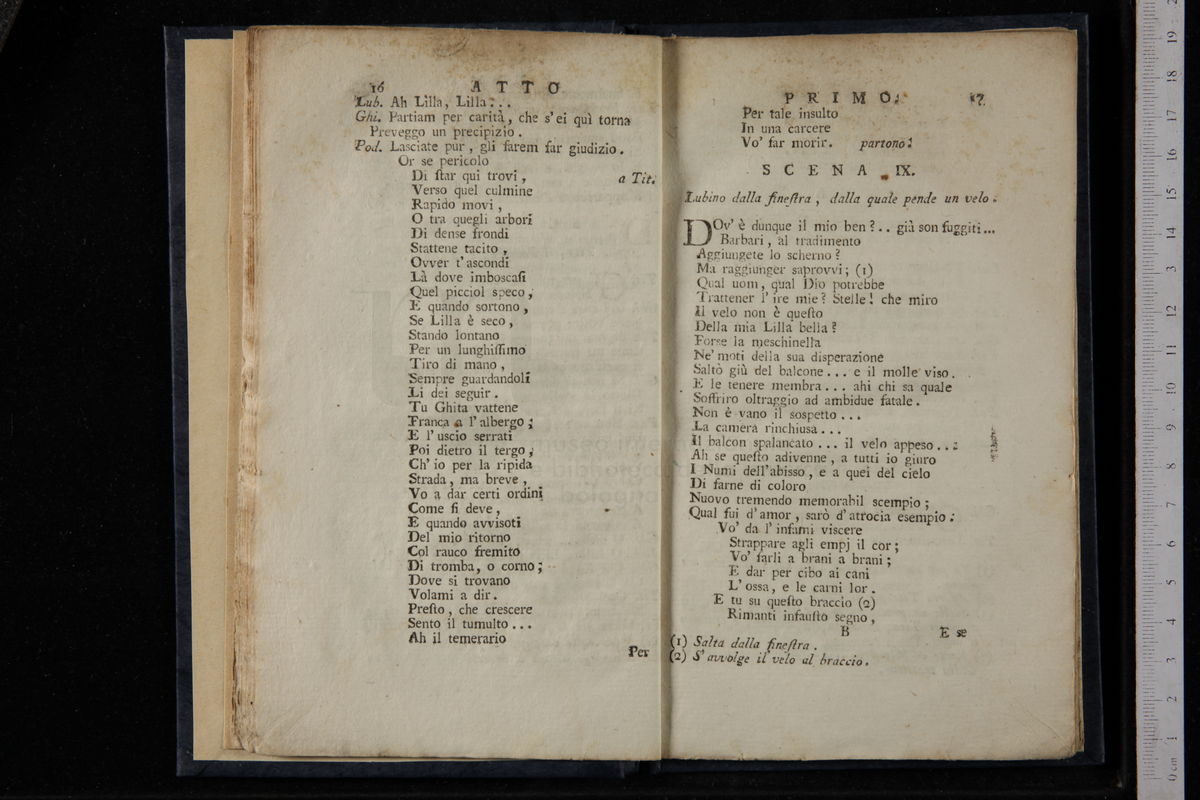 16 ATTO
Lub. Ah Lilla, Lilla...
Ghi. Partiam per carità, che s'ei quì torna
Preveggo un precipizio.
Pod. Lasciate pur, gli farem far giudizio.
Or se pericolo
Di ſtar qui trovi, a Tit.
Verso quel culmine
Rapido movi,
O tra quegli arbori
Di dense frondi
Stattene tacito,
Ovver t'ascondi
Là dove imboscaſi
Quel picciol speco,
E quando sortono,
Se Lilla è seco,
Stando lontano
Per un lunghiſſimo
Tiro di mano,
Sempre guardandoli
Li dei seguir.
Tu Ghita vattene
Franca a l'albergo;
E l'uscio serrati
Poi dietro il tergo,
Ch'io per la ripida
Strada, ma breve,
Vo a dar certi ordini
Come ſi deve,
E quando avvisoti
Del mio ritorno
Col rauco fremito
Di tromba, o corno;
Dove si trovano
Volami a dir.
Preſto, che crescere
Sento il tumulto...
Ah il temerario
Per
PRIMO. 17
Per tale insulto
In una carcere
Vo' far morir. partono.
SCENA IX.
Lubino dalla fineſtra, dalla quale pende un velo.
DOv'è dunque il mio ben?.. già son fuggiti...
Barbari, al tradimento
Aggiungete lo scherno?
Ma raggiunger saprovvi; (1)
Qual uom, qual Dio potrebbe
Trattener l'ire mie? Stelle! che miro
Il velo non è queſto
Della mia Lilla bella?
Forse la meschinella
Ne' moti della sua disperazione
Saltò giù del balcone... e il molle viso.
E le tenere membra... ahi chi sa quale
Soffriro oltraggio ad ambidue fatale.
Non è vano il sospetto...
La camera rinchiusa...
Il balcon spalancato... il velo appeso...
Ah se queſto adivenne, a tutti io giuro
I Numi dell'abisso, e a quei del cielo
Di farne di coloro
Nuovo tremendo memorabil scempio;
Qual fui d'amor, sarò d'atrocia esempio.
Vo' da l'infami viscere
Strappare agli empj il cor;
Vo' farli a brani a brani;
E dar per cibo ai cani
L'ossa, e le carni lor.
E tu su queſto braccio (2)
Rimanti infauſto segno,
B E se
(1) Salta dalla fineſtra.
(2) S'avvolge il velo al braccio.